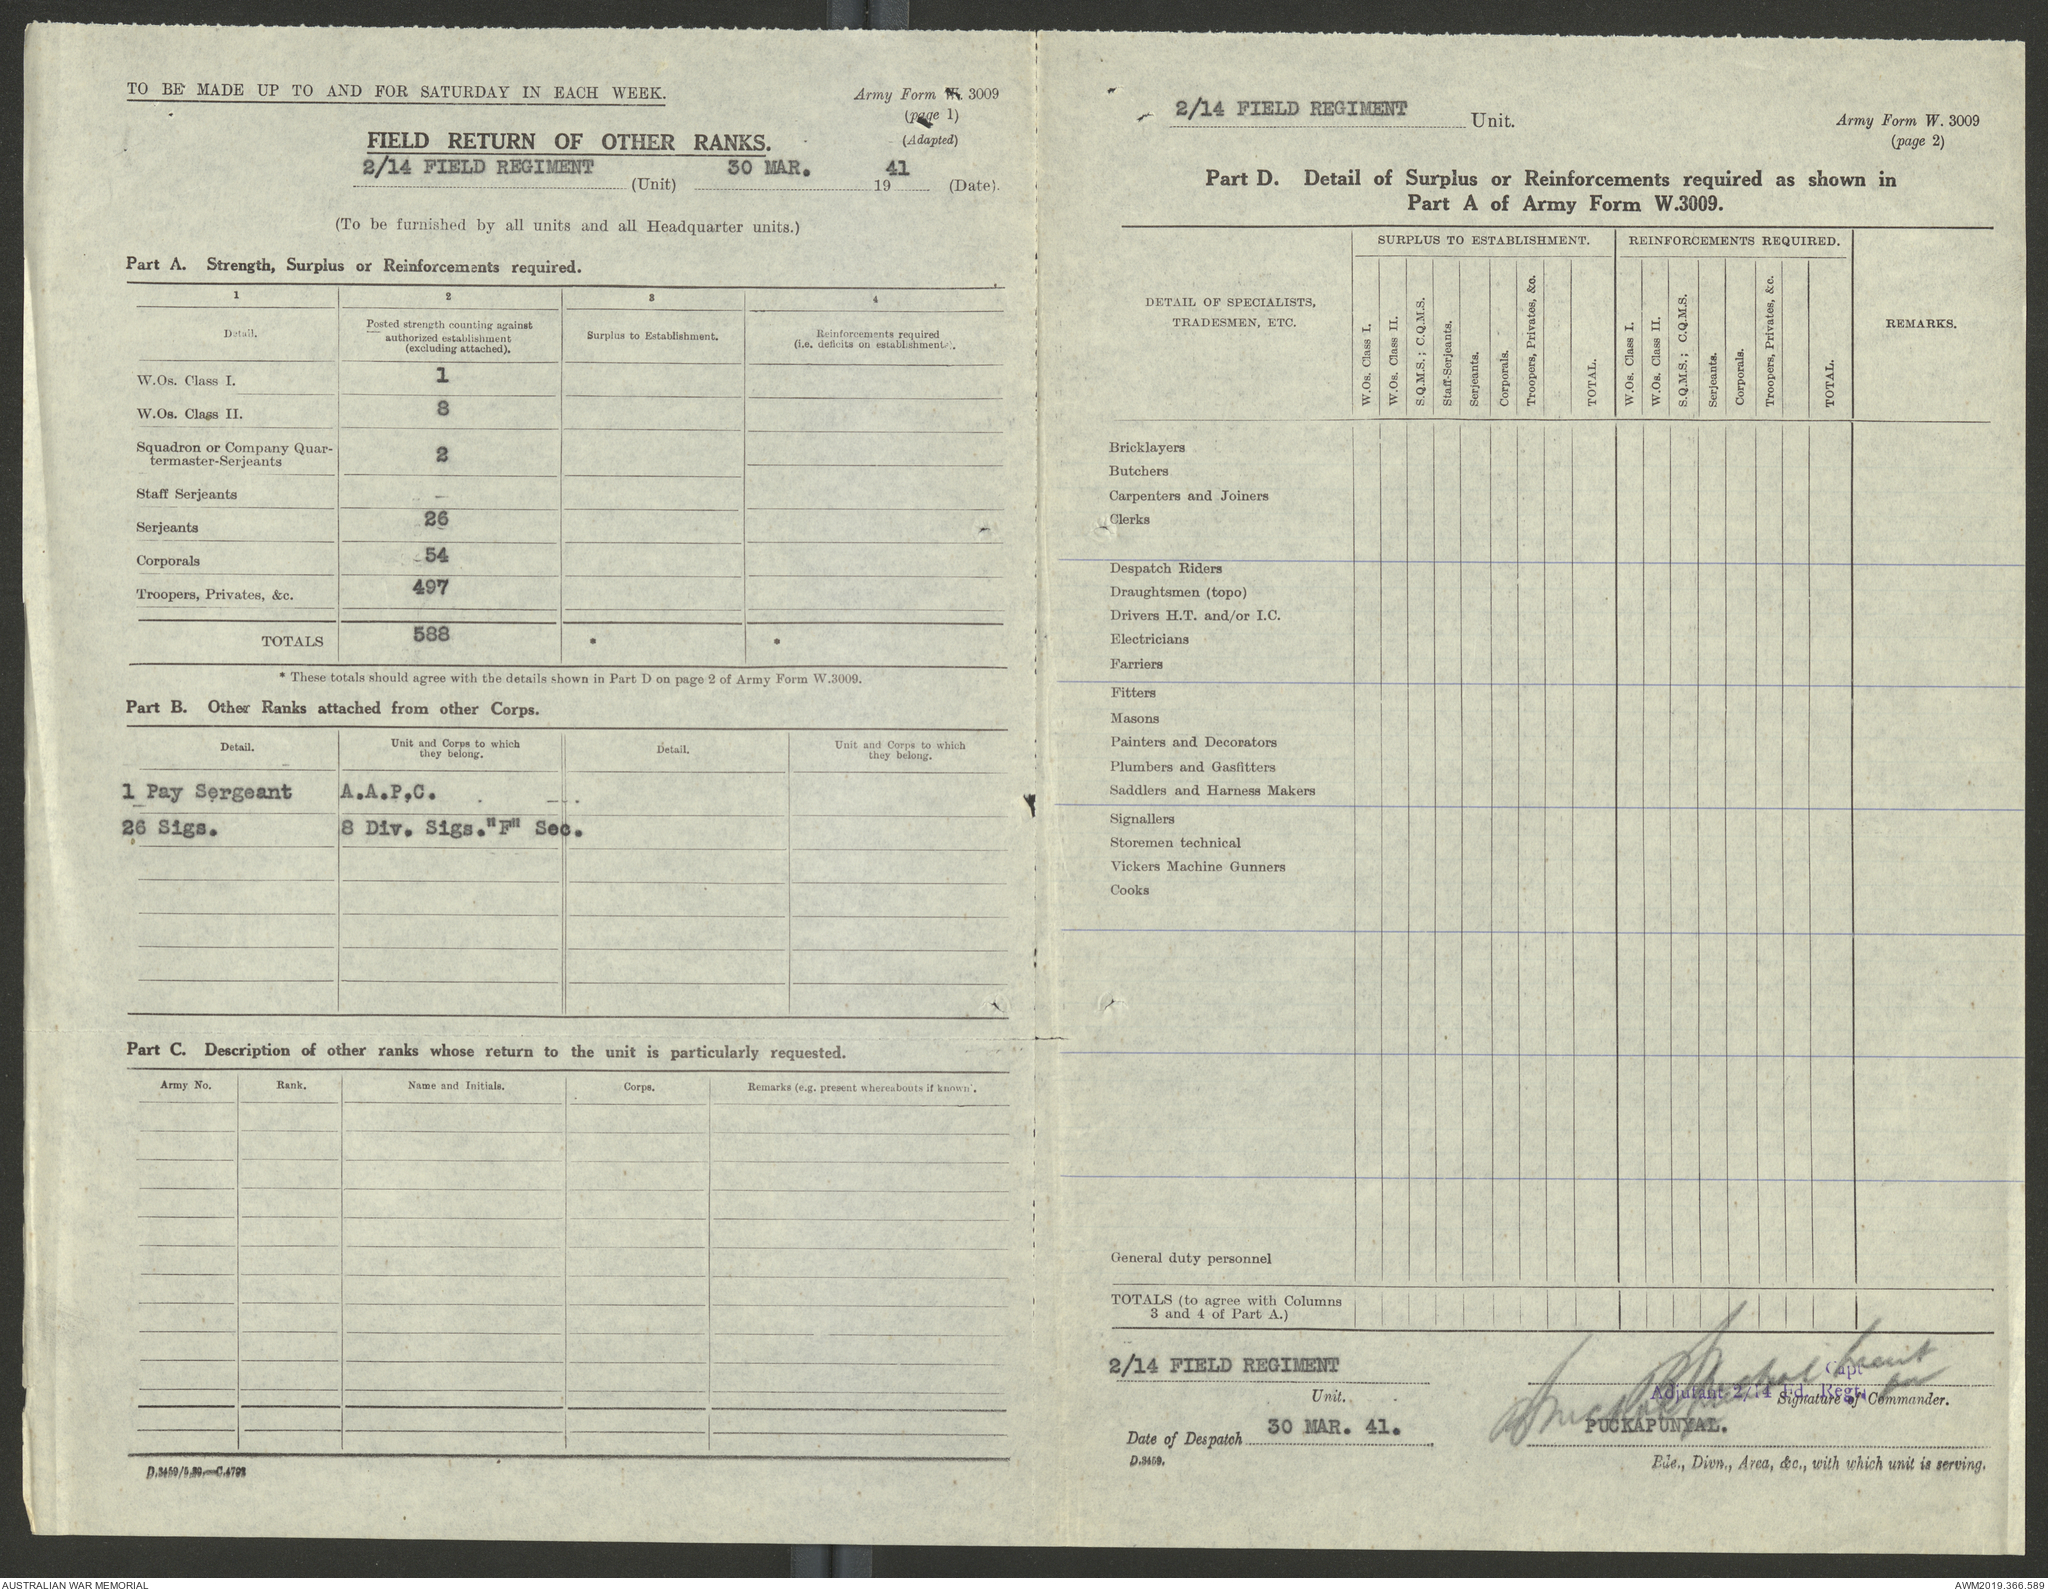 TO BE MADE UP TO AND FOR SATURDAY IN EACH WEEK.
Army Form W. 3009
(page 1)
(Adapted)
FIELD RETURN OF OTHER RANKS.
2/14 FIELD REGIMENT (Unit) 30 MAR. 19 41 (Date).
(To be furnished by all units and all Headquarter units.)
Part A. Strength, Surplus or Reinforcements required.
1 2 3 4
Detail.
Posted strength counting against
authorized establishment
(excluding attached).
Surplus to Establishment.
Reinforcements required
(i.e. deficits on establishments).
W.Os. Class I. 1
W.Os. Class II. 8
Squadron or Company Quar-
termaster-Serjeants 2
Staff Serjeants –
Serjeants 26
Corporals 54
Troopers, Privates, &c. 497
TOTALS 588 * *
* These totals should agree with the details shown in Part D on page 2 of Army Form W.3009.
Part B. Other Ranks attached from other Corps.
Detail.
Unit and Corps to which
they belong.
Detail.
Unit and Corps to which
they belong.
1 Pay Sergeant A.A.P,C.
26 Sigs. 8 Div. Sigs."F" Sec.
Part C. Description of other ranks whose return to the unit is particularly requested.
Army No. Rank. Name and Initials. Corps. Remarks (e.g. present whereabouts if known).
D.3459/5.39.—C.4793
2/14 FIELD REGIMENT Unit.
Army Form W. 3009
(page 2)
Part D. Detail of Surplus or Reinforcements required as shown in
Part A of Army Form W.3009.
DETAIL OF SPECIALISTS,
TRADESMEN, ETC.
SURPLUS TO ESTABLISHMENT.
W.Os. Class I.
W.Os. Class II.
S.Q.M.S.; C.Q.M.S.
Staff-Serjeants.
Serjeants.
Corporals.
Troopers, Privates, &c.
TOTAL.
REINFORCEMENTS REQUIRED.
W.Os. Class I.
W.Os. Class II.
S.Q.M.S.; C.Q.M.S.
Serjeants.
Corporals.
Troopers, Privates, &c.
TOTAL.
REMARKS.
Bricklayers
Butchers
Carpenters and Joiners
Clerks
Despatch Riders
Draughtsmen (topo)
Drivers H.T. and/or I.C.
Electricians
Farriers
Fitters
Masons
Painters and Decorators
Plumbers and Gasfitters
Saddlers and Harness Makers
Signallers
Storemen technical
Vickers Machine Gunners
Cooks
General duty personnel
TOTALS (to agree with Columns
3 and 4 of Part A.)
2/14 FIELD REGIMENT
Unit.
Capt
Adjutant 2/14 Fd. Regt.
Signature of Commander.
Date of Despatch 30 MAR. 41.
PUCKAPUNYAL.
D.3459.
Bde., Divn., Area, &c., with which unit is serving.
AUSTRALIAN WAR MEMORIAL
AWM2019.366.589